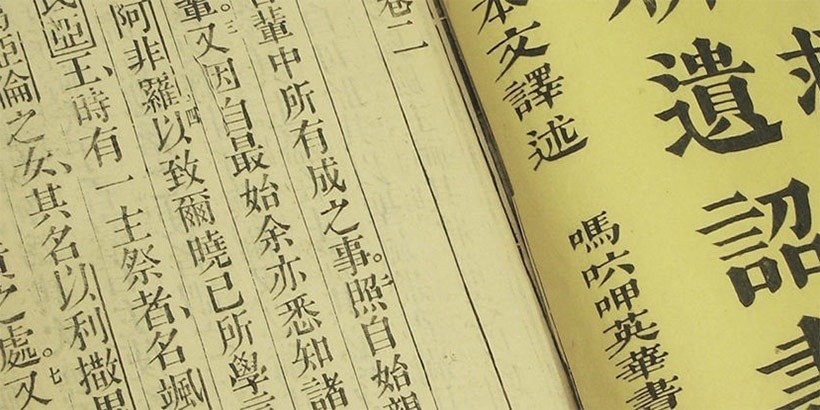 遺詔書
本文譯述
嗎㕸呷英華書
卷二
輩中所有成之事。照自始親
輩。又因自最始余亦悉知諸
阿非羅以致爾曉已所學言
民亞王、時有一主祭者、名颯
亞倫之女、其名以利撒
之處。又